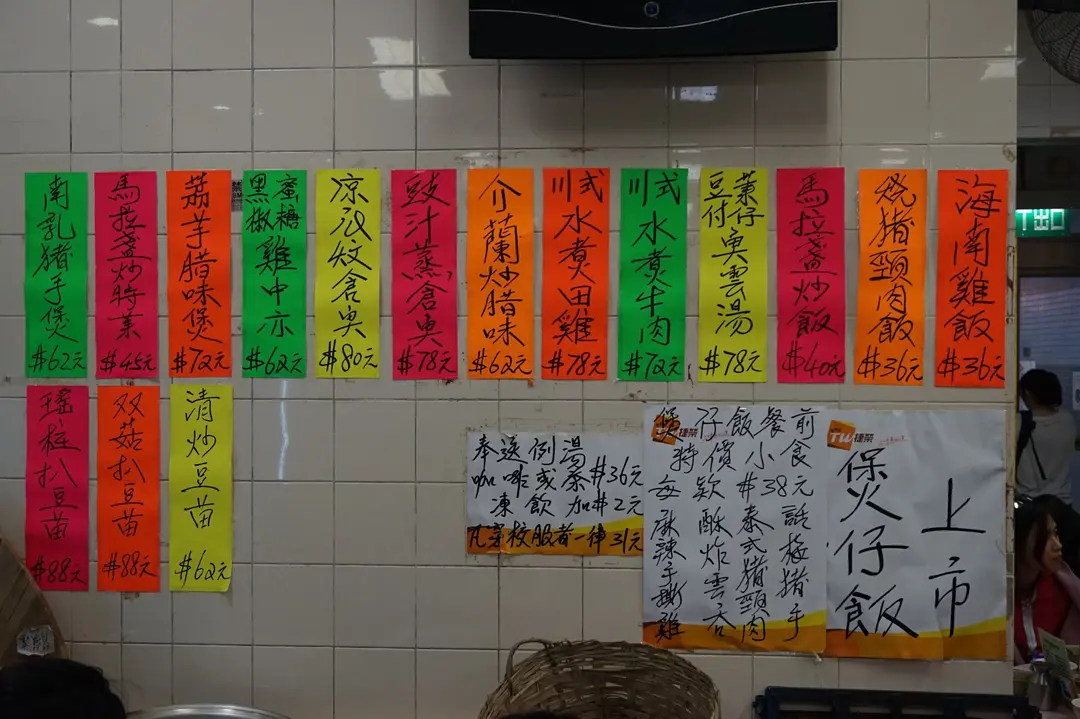 南乳豬手煲
$62元
馬拉盞炒時菜
$45元
荔芋腊味煲
$72元
黑椒
蜜糖
雞中亦
$62元
凉瓜炆倉魚
$80元
豉汁蒸倉魚
$78元
介蘭炒腊味
$62元
川式水煮田雞
$78元
川式水煮牛肉
$72元
豆付
仔魚雲湯
$78元
馬拉盞炒飯
$40元
燒豬頸肉飯
$36元
海南雞飯
$36元
瑤柱扒豆苗
$88元
双菇扒豆苗
$88元
清炒豆苗
$62元
奉送例湯
咖啡或茶 $36元
凍飲加$2元
凡穿校服者一律31元
TW捷榮
煲仔飯餐前
特價小食
每款$38元
話梅豬手
泰式豬頸肉
酥炸雲吞
麻辣手撕雞
TW捷榮
煲仔飯
上市
出口